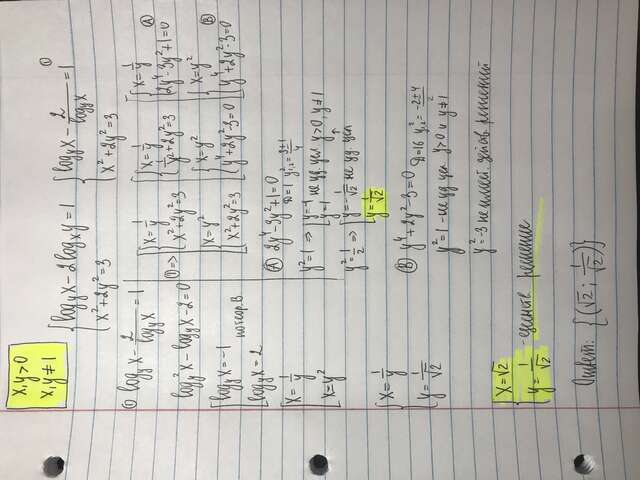 x,y>0
x,y≠1
{log_y x - 2log_x y = 1
x²+2y²=3
{log_y x - 2/log_y x = 1 ①
x²+2y²=3
① log_y x - 2/log_y x = 1
log_y² x - log_y x - 2 = 0
[log_y x = -1
log_y x = 2
по теор. В.
[x = 1/y
x = y²
① => [{x = 1/y
x²+2y²=3
{x = y²
x²+2y²=3
[{x = 1/y
1/y²+2y²=3
{x = y²
y⁴+2y²-3=0
[{x = 1/y
2y⁴-3y²+1=0 Ⓐ
{x = y²
y⁴+2y²-3=0 Ⓑ
Ⓐ 2y⁴-3y²+1=0
D=1 y²₁,₂ = 3±1/4
y²=1 => [y=-1
y=1
не уд. усл y>0, y≠1
y²=1/2 => [y=-1/√2 не уд. усл
y=1/√2
{x = 1/y
y = 1/√2
Ⓑ y⁴+2y²-3=0
D=16 y²₁,₂ = -2±4/2
y²=1 - не уд усл. y>0 и y≠1
y²=-3 не имеет. действ решений
{x=√2
y = 1/√2
- единств. решение
Ответ: {(√2; 1/√2)}